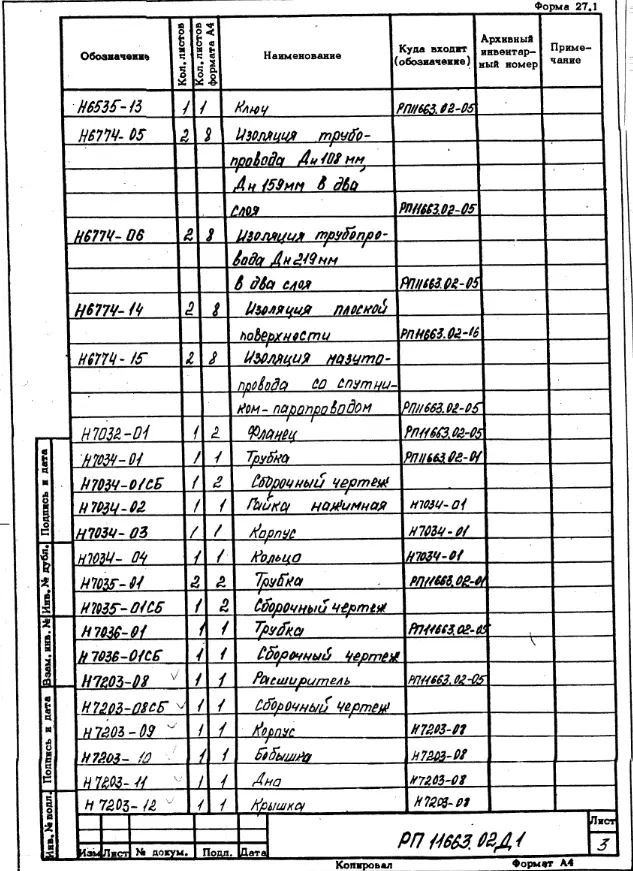 Форма 27.1
Обозначение Кол. листов Кол. листов формата А4 Наименование Куда входит (обозначение) Архивный инвентар-ный номер Приме-чание
Н6535-13 1 1 Ключ РП11663.02-05
Н6774-05 2 8 Изоляция трубо-
провода Дн 108 мм,
Дн 159мм в два
слоя РП11663.02-05
Н6774-06 2 8 Изоляция трубопро-
вода Дн 219мм
в два слоя РП11663.02-05
Н6774-14 2 8 Изоляция плоской
поверхности РП11663.02-16
Н6774-15 2 8 Изоляция мазуто-
провода со спутни-
ком-паропроводом РП11663.02-05
Н7032-01 1 2 Фланец РП11663.02-05
Н7034-01 1 1 Трубка РП11663.02-01
Н7034-01СБ 1 2 Сборочный чертеж
Н7034-02 1 1 Гайка нажимная Н7034-01
Н7034-03 1 1 Корпус Н7034-01
Н7034-04 1 1 Кольцо Н7034-01
Н7035-01 2 2 Трубка РП11663.02-01
Н7035-01СБ 1 2 Сборочный чертеж
Н7036-01 1 1 Трубка РП11663.02-05
Н7036-01СБ 1 1 Сборочный чертеж
Н7203-08 1 1 Расширитель РП11663.02-05
Н7203-08СБ 1 1 Сборочный чертеж
Н7203-09 1 1 Корпус Н7203-08
Н7203-10 1 1 Бобышка Н7203-08
Н7203-11 1 1 Дно Н7203-08
Н7203-12 1 1 Крышка Н7203-08
Подпись и дата
Инв. № дубл.
Взам. инв. №
Подпись и дата
Инв. № подл.
Изм Лист № докум. Подп. Дата
РП 11663.02Д1
Лист
3
Копировал Формат А4